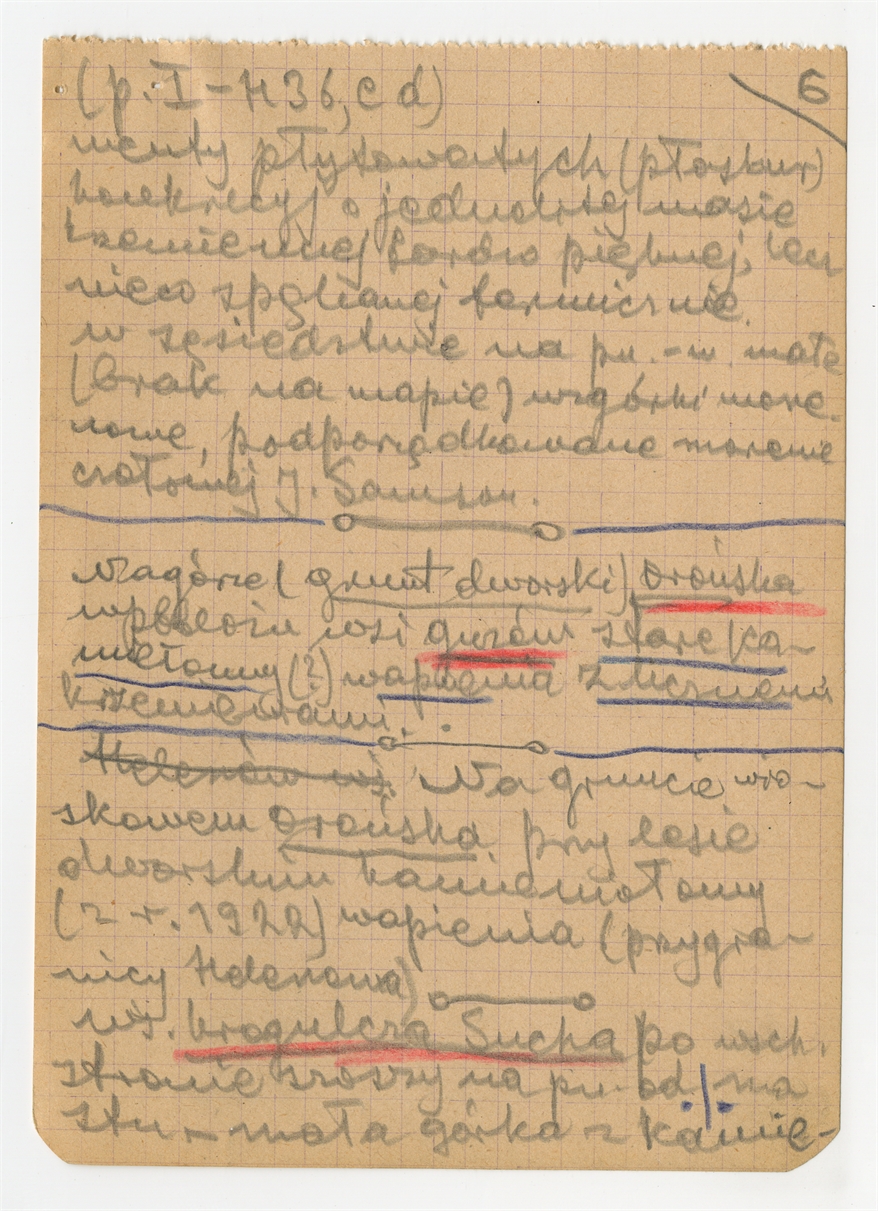 (p. I-H36, c d) 6
menty płytowatych (płaskur)
konkrecyj o jednolitej masie
krzemiennej bardzo pięknej, lecz
nieco spękanej termicznie.
w sąsiedztwie na pn.-w. małe
(brak na mapie) wzgórki more-
nowe, podporządkowane morenie
czołowej J. Samson.
Nagórze (grunt dworski) Orońska
wpobliżu wsi Guzów stare ka-
miełomy (?) wapienia z licznemi
krzemieniami.
Helenów wś. Na gruncie wio-
skowem Orońska przy lesie
dworskim kamieniołomy
(z r. 1922) wapienia (przy gra-
nicy Helenowa)
wś. Krogulcza Sucha po wsch.
stronie szosy na pn. od ma
stu - mała górka z kamie-